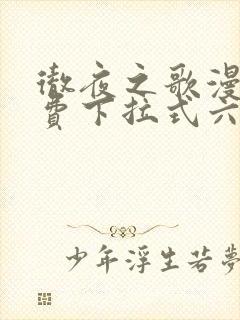 徹夜之歌漫
費下拉式六
少年浮生若夢